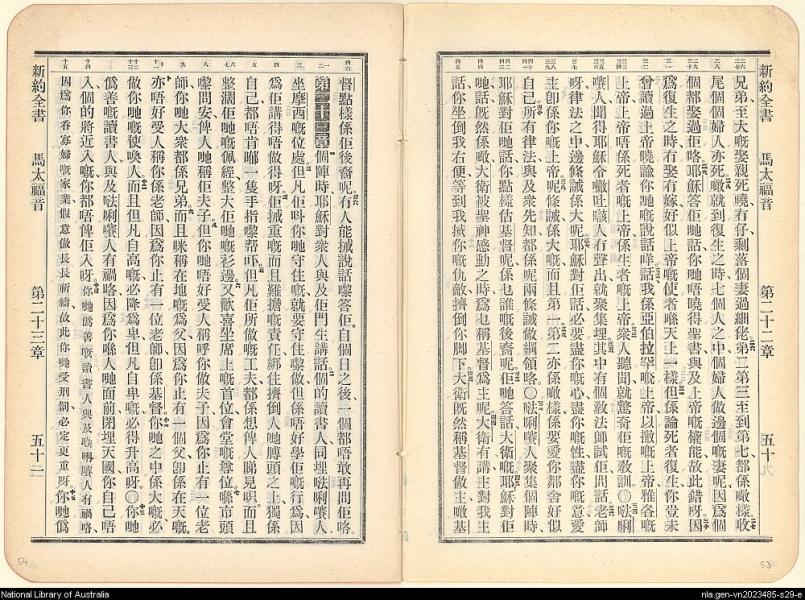 新約全書 馬太福音 第二十二章 五十
兄弟至大嘅娶親死嘵冇仔剩落個妻過細佬第二第三至到第七都係噉樣收
尾個個婦人亦死嘵就到復生之時七個人之中個婦人做邊個嘅妻呢因為個
個都娶過佢咯耶穌答佢哋話你哋唔曉得聖書與及上帝嘅權能故此錯呀因
為復生之時冇娶冇嫁好似上帝嘅使者喺天上一樣但係論死者復生你豈未
曾讀過上帝曉諭你哋嘅說話咩話我係亞伯拉罕嘅上帝以撒嘅上帝雅各嘅
上帝上帝唔係死者嘅上帝係生者嘅上帝衆人聽聞就驚奇佢嘅教訓〇㗳唎
嚽人聞得耶穌令撒吐𠹌人冇聲出就聚集埋其中有個教法師試佢問話老師
呀律法之中邊條誡係大呢耶穌對佢話必要盡你嘅心盡你嘅性盡你嘅意愛
主卽係你嘅上帝呢條誡係大嘅而且第一第二亦係噉樣係要愛你鄰舍好似
自己所有律法與及衆先知都係呢兩條誡做綱領咯〇㗳唎嚽人聚集個陣時
耶穌對佢哋話你點樣估基督呢係乜誰嘅後裔呢佢哋答話大衛嘅耶穌對佢
哋話旣然係噉大衛被聖神感動之時爲乜稱基督爲主呢大衛有講主對我主
話你坐倒我右便等到我搣你嘅仇敵擠倒你脚下大衛旣然稱基督做主噉基
督點樣係佢後裔呢冇人能搣說話嚟答佢自個日之後一個都唔敢再問佢咯
第二十三章個陣時耶穌對衆人與及佢門生講話個的讀書人同埋㗳唎嚽人
坐摩西嘅位處但凡佢吩你哋守住嘅就要守住嚟做但係唔好學佢嘅行爲因
爲佢講得唔做得呀佢搣重嘅而且難擔嘅責任綁住擠倒人哋膊頭之上獨係
自己都唔肯喐一隻手指嚟幫吓但凡佢所做嘅工夫都係想俾人睇見啫而且
整濶佢哋嘅佩經整大佢哋嘅衫邊又歡喜坐席上嘅首位會堂嘅尊位喺市頭
嚟問安俾人哋稱佢夫子但你哋唔好受人稱呼你做夫子因爲你止有一位老
師你哋大衆都係兄弟而且咪稱在地嘅爲父因爲你止有一個父卽係在天嘅
亦唔好受人稱你係老師因爲你止有一位老師卽係基督你哋之中係大嘅必
做你哋嘅使喚人而且但凡自高嘅必降爲卑但凡自卑嘅必得升高呀〇你哋
僞善嘅讀書人與及㗳唎嚽人有禍咯因爲你喺人哋面前閉埋天國你自己唔
入個的將近入嘅你都唔俾佢入呀你哋僞善嘅讀書人與及㗳唎嚽人有禍咯
因爲你吞寡婦嘅家業假意做長長祈禱故此你哋受刑罰必定更重呀你哋僞
新約全書 馬太福音 第二十三章 五十二
54
53
National Library of Australia
nla.gen-vn2023485-s29-e